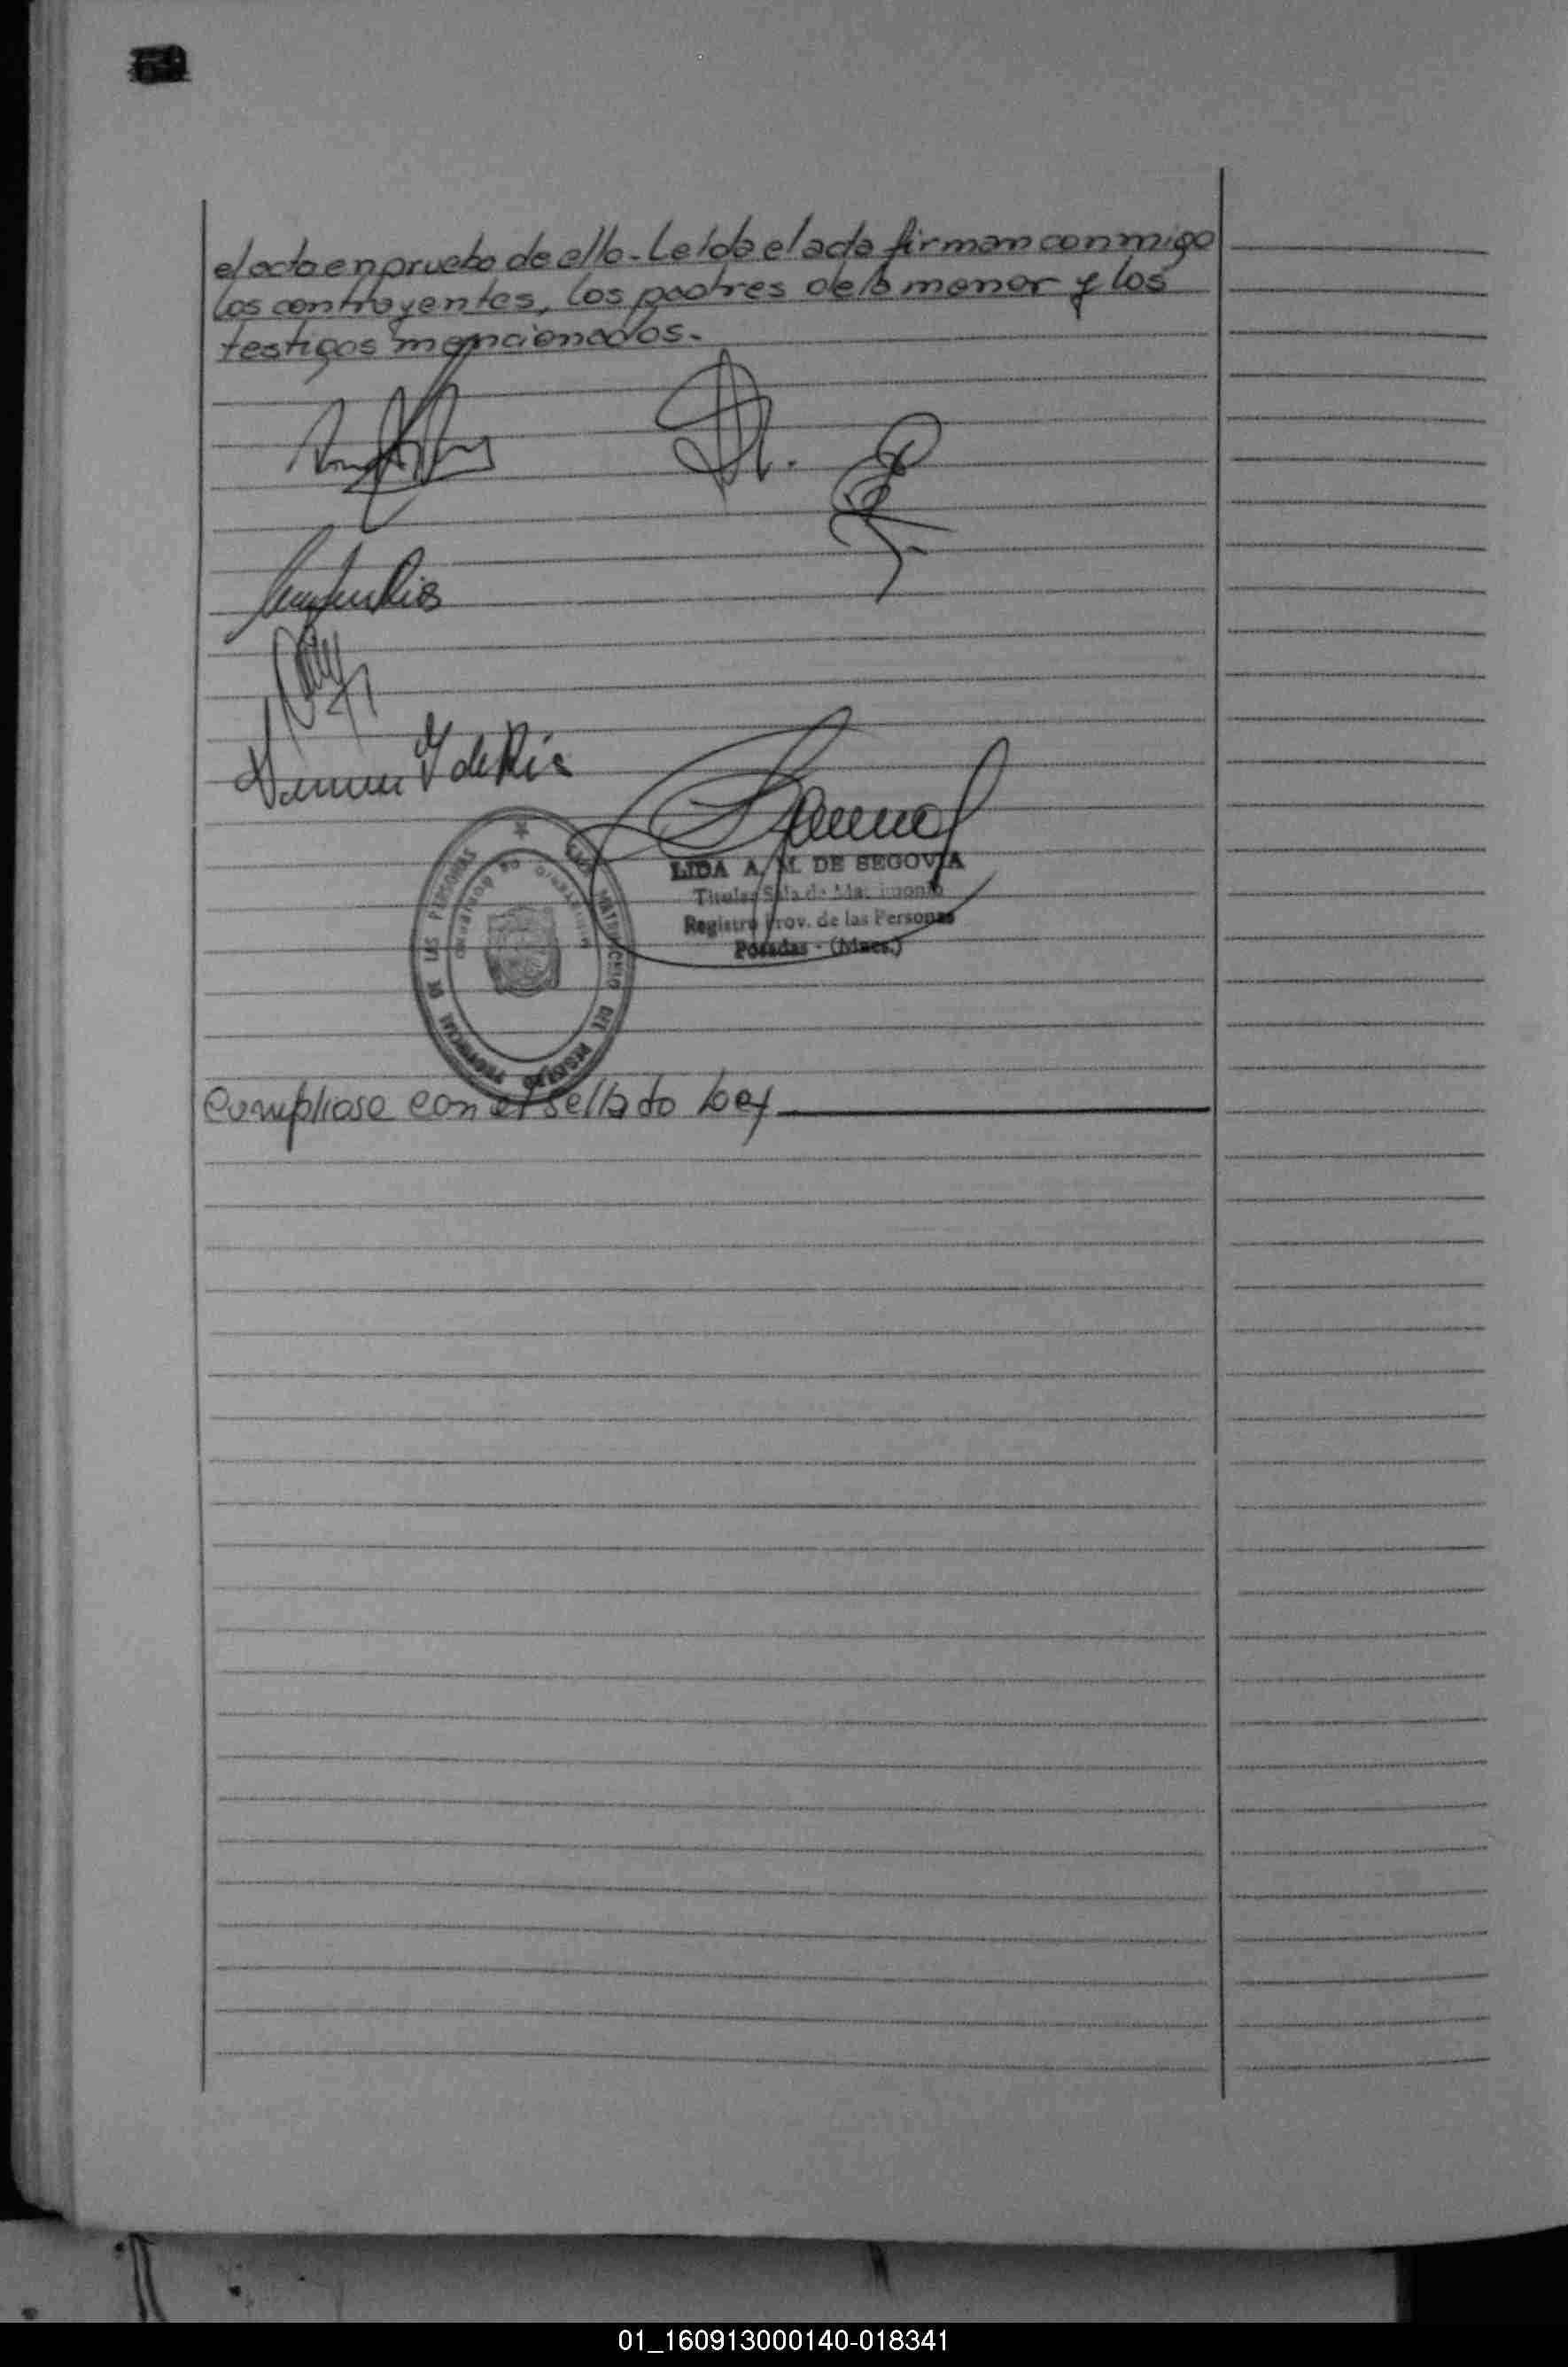 el acta en prueba de ello.- Leída el acta firman conmigo
los contrayentes, los padres de la menor y los
testigos mencionados.-
de Ríos
LIDA A. M. DE SEGOVIA
Titular Sala de Matrimonio
Registro Prov. de las Personas
Posadas - (Mnes.)
PROVINCIAL DE LAS PERSONAS
DEL REGISTRO
Ministerio de Gobierno
Cumpliose con el sellado Ley
01_160913000140-018341